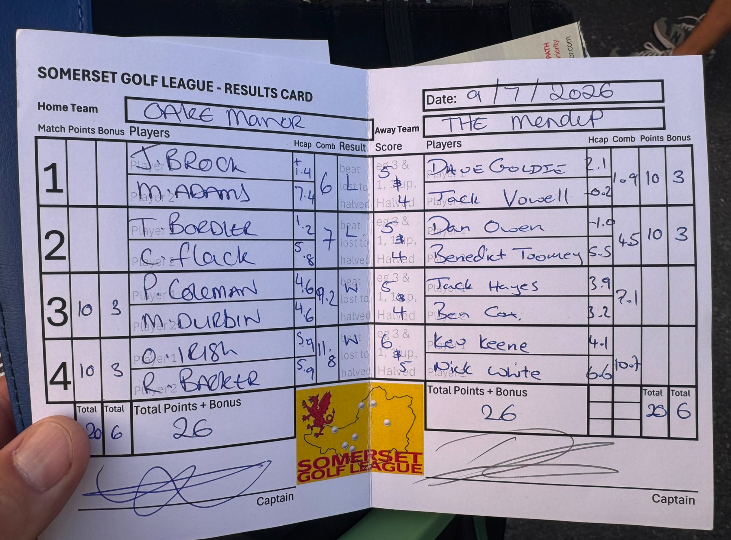 SOMERSET GOLF LEAGUE - RESULTS CARD
Home Team OAKE MANOR
Match Points Bonus Players Hcap Comb Result
1 J. BROCK +1.4 6 L
M. ADAMS 7.4
2 T. BORDIER 1.2 7 L
C. flack 5.8
3 10 3 P. COLEMAN 4.6 9.2 W
M. DURBIN 4.6
4 10 3 O. IRISH 5.9 11.8 W
R. BARKER 5.9
Total Total Total Points + Bonus
20 6 26
Captain
Date: 9/7/2026
Away Team THE MENDIP
Score Players Hcap Comb Points Bonus
5 & 4 DAVE GOLDIE 2.1 1.9 10 3
Jack Vowell -0.2
5 & 4 Dan Owen -1.0 4.5 10 3
Benedict Toomey 5.5
5 & 4 Jack Hayes 3.9 7.1
Ben Cox, 3.2
6 & 5 Kev Keene 4.1 10.7
Nick White 6.6
Total Points + Bonus Total Total
26 20 6
SOMERSET
GOLF LEAGUE
Captain